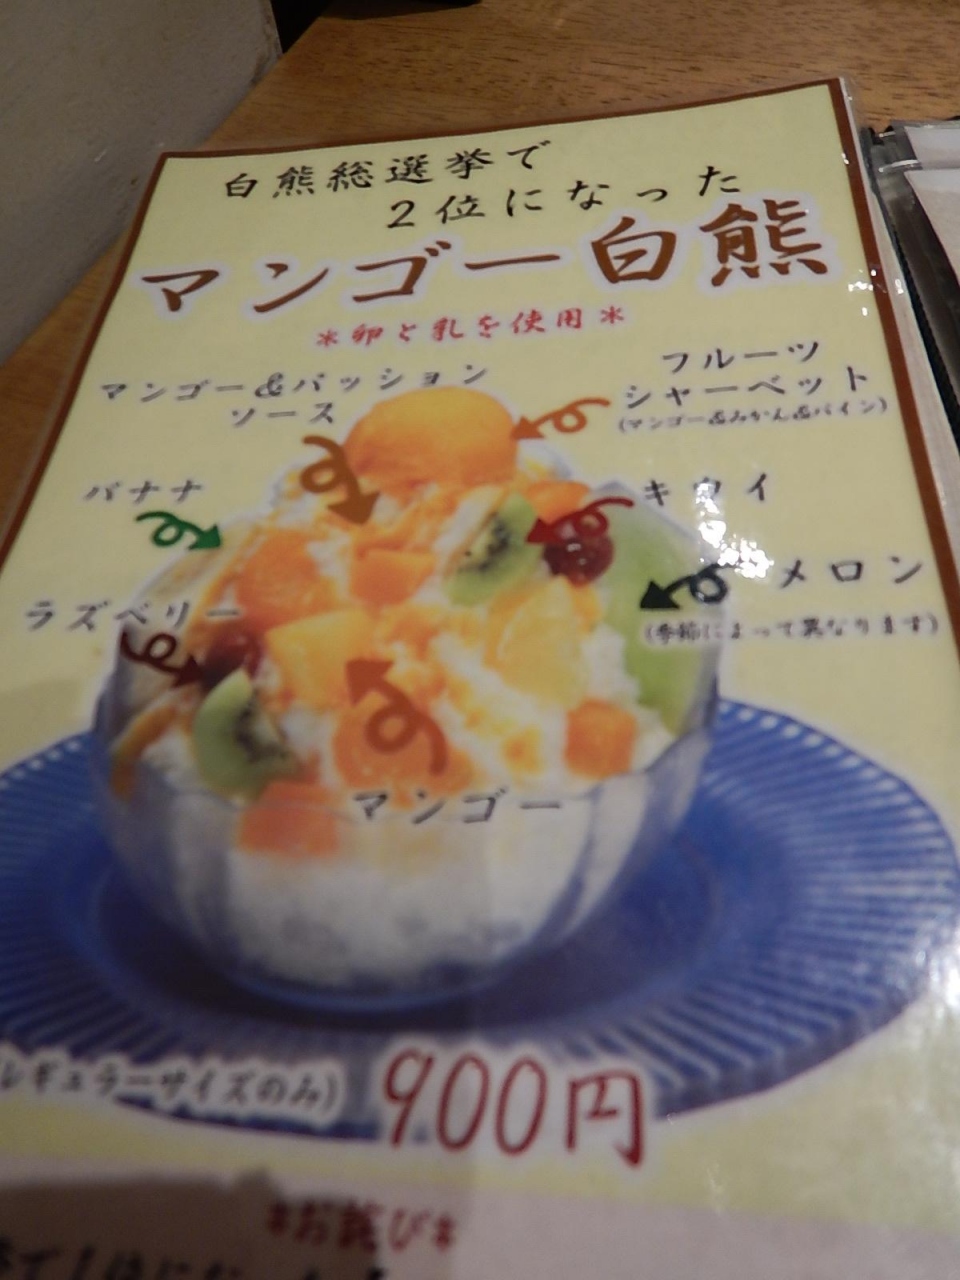 白熊総選挙で
2位になった
マンゴー白熊
*卵と乳を使用*
マンゴー&パッション
ソース
フルーツ
シャーベット
(マンゴー&みかん&パイン)
バナナ
キウイ
メロン
(季節によって異なります)
ラズベリー
マンゴー
レギュラーサイズのみ)
900円
*お詫び*